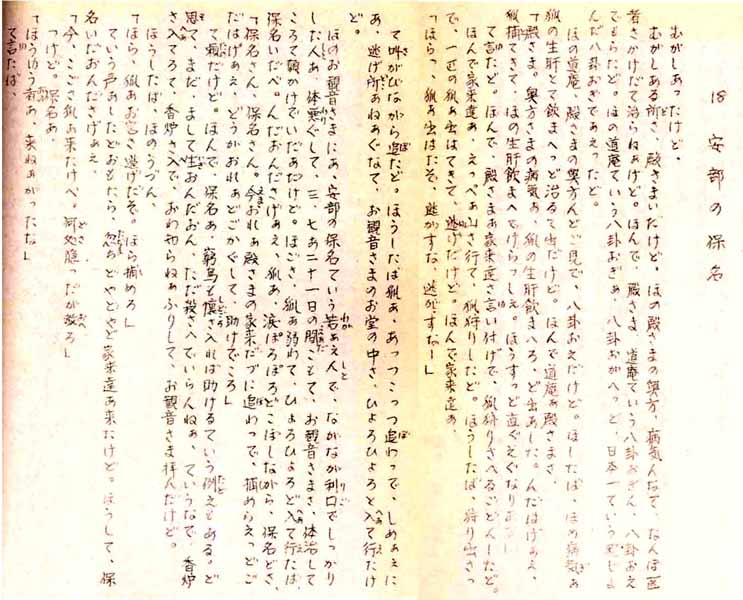 18 安部の保名
むがしあったけど。
むがしある所さ、殿さまいだけど。ほの殿さまの奥方、病気んなて、なんぼ医
者さかげだて治らねぁけど。ほんで、殿さま、道庵ていう八卦おぎさ、八卦おえ
でもらたど。ほの道庵ていう八卦おぎぁ、八卦おがへっど、日本一ていう
んだ八卦おぎであえったど。
ほの道庵、殿さまの奥方んどご見で、八卦おえだけど。ほしたば、ほの病気ぁ
狐の生肝とて飲まへっど治るて出だけど。ほんで道庵ぁ殿さまさ、
「殿さま。奥方さまの病気ぁ、狐の生肝飲まへろ、ど出あした。んだはげぁえ、
狐捕てきて、ほの生肝飲まへでけらっしえ。ほうすっど直ぐえぐなりあ
て言たど。ほんで、殿さまぁ家来達さ言い付げで、狐狩りさへるごどんしたど。
ほんで家来達ぁ、えっぺぁ山さ行て、狐狩りしたど。ほうしたば、狩り出さっ
で、一匹の狐ぁ出はてきて、逃げだけど。ほんで家来達ぁ、
「ほらっ、狐ぁ出はたぞ、逃がすな、逃がすなー」
て叫がびながら追たど。ほうしたば狐ぁ、あっつこっつ追わっで、しめぁえに
あ、逃げ所ぁねぁぐなて、お観音さまのお堂の中さ、ひょろひょろと入て行たけ
ど。
ほのお観音さまにぁ、安部の保名ていう若ぁえ人で、ながなが利口でしっかり
した人ぁ、体悪ぐして、三、七ぁ二十一日の間こもて、お観音さまさ、体治して
ころて願かけでいだぁたけど。ほごさ、狐ぁ弱わて、ひょろひょろど入て行たば、
保名いだべ。んだおんださげぁえ、狐ぁ、涙ぽろぽろどこぼしながら、保名どさ、
「保名さん、保名さん。今おれぁ殿さまの家来だづに追わっで、捕めらえっどご
だはげぁえ、どうがおれぁどごかぐして、助けでころ」
て頼だけど。ほんで、保名ぁ、窮鳥も懐さ入れば助けるていう例えもある。ど
思て、まだ、まして生おんだおん、ただ殺さへでいらんねぁ、ていうなで、香炉
さ入てろて、香炉さ入で、おわ知らねぁふりして、お観音さま拝んだけど。
ほうしたば、ほのうづん、
「ほら、狐ぁお宮さ逃げだぞ。ほら捕めろ」
ていう声ぁしたどおもたら、忽ちどやどやど家来達ぁ来たけど。ほうして、保
名いだおんださげぁえ、
「今、こごさ狐ぁ来たけべ。何処隠ったが教ろ」
「つけど。保名ぁ、
「ほうゆう者ぁ、来ねぁがったな」
て言たば、